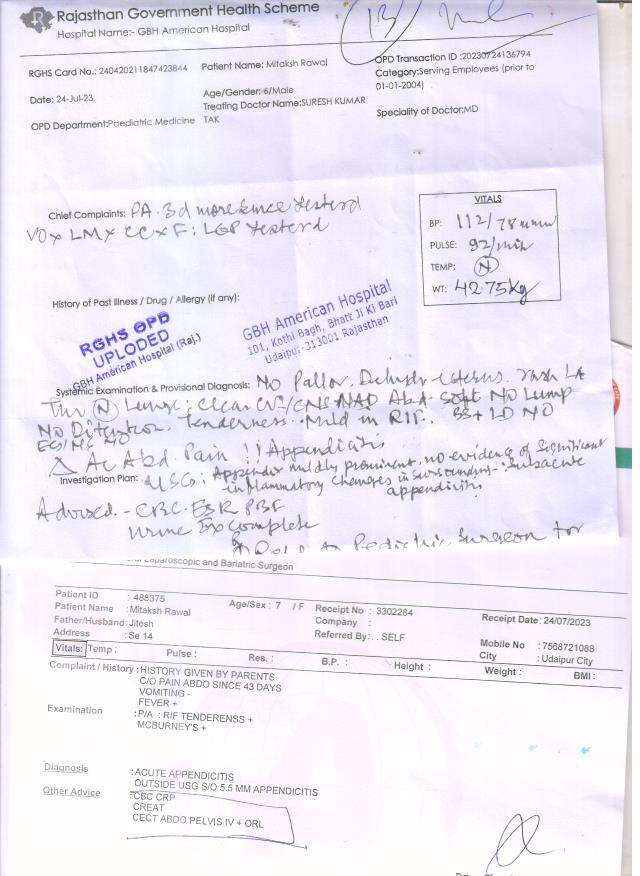 Rajasthan Government Health Scheme
Hospital Name:- GBH American Hospital
RGHS Card No.: 240420211847423844
Patient Name: Mitaksh Rawal
OPD Transaction ID :20230724136794
Category:Serving Employees (prior to
01-01-2004)
Date: 24-Jul-23
Age/Gender:6/Male
Treating Doctor Name:SURESH KUMAR
TAK
Speciality of Doctor:MD
OPD Department:Paediatric Medicine
VITALS
BP: 112/78
PULSE: 92/min
TEMP: N
WT: 42.75kg
Chief Complaints: PA. 3d more since
History of Past Illness / Drug / Allergy (if any):
RGHS OPD
UPLODED
GBH American Hospital (Raj.)
GBH American Hospital
101, Kothi Bagh, Bhatt Ji Ki Bari
Udaipur-313001 Rajasthan
Systemic Examination & Provisional Diagnosis: No Pallor
N Lungs: Clear CVS/CNS NAD Abd. Soft No Lump
No Tenderness. Mild in RIF.
Δ Ac Abd. Pain !! Appendicitis
Investigation Plan: USG: Appendix mildly prominent, no evidence of significant
inflammatory changes in Subacute
appendicitis
Advised. - CBC. ESR PBF
Urine complete
to Pediatric Surgeon for
Laparoscopic and Bariatric Surgeon
Patient ID : 488375
Age/Sex : 7 / F
Receipt No : 3302284
Receipt Date: 24/07/2023
Patient Name : Mitaksh Rawal
Company :
Father/Husband: Jitesh
Referred By: . SELF
Mobile No : 7568721088
Address : Se 14
City : Udaipur City
Vitals: Temp : Pulse : Res. : B.P. : Height : Weight : BMI :
Complaint / History : HISTORY GIVEN BY PARENTS
C/O PAIN ABDO SINCE 43 DAYS
VOMITING -
FEVER +
Examination : P/A : RIF TENDERENSS +
MCBURNEY'S +
Diagnosis : ACUTE APPENDICITIS
OUTSIDE USG S/O 5.5 MM APPENDICITIS
Other Advice : CBC CRP
CREAT
CECT ABDO PELVIS IV + ORL